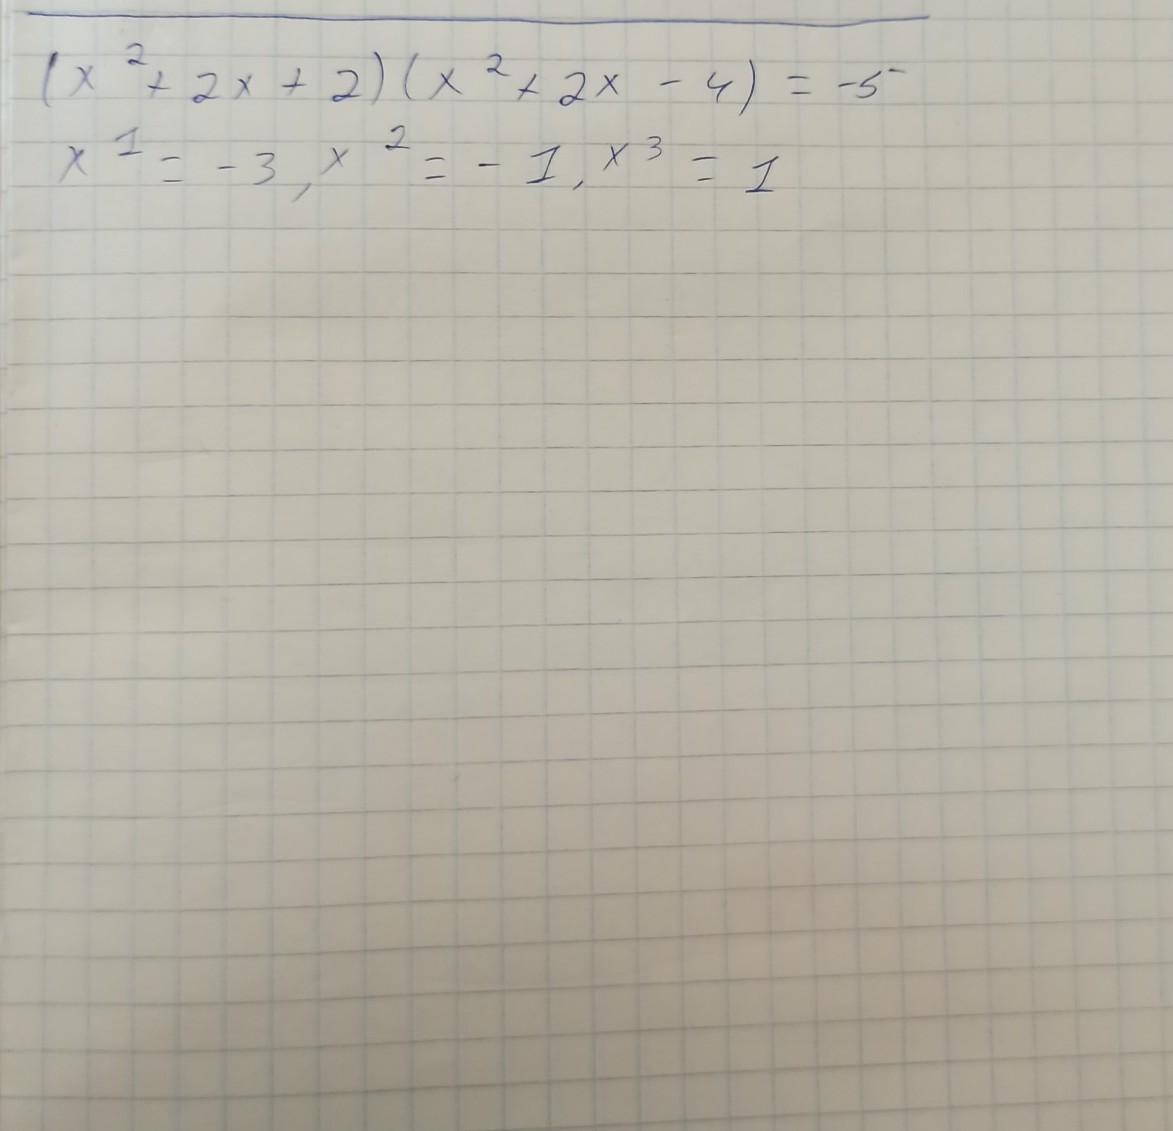 (x² + 2x + 2)(x² + 2x - 4) = -5
x¹ = -3, x² = -1, x³ = 1